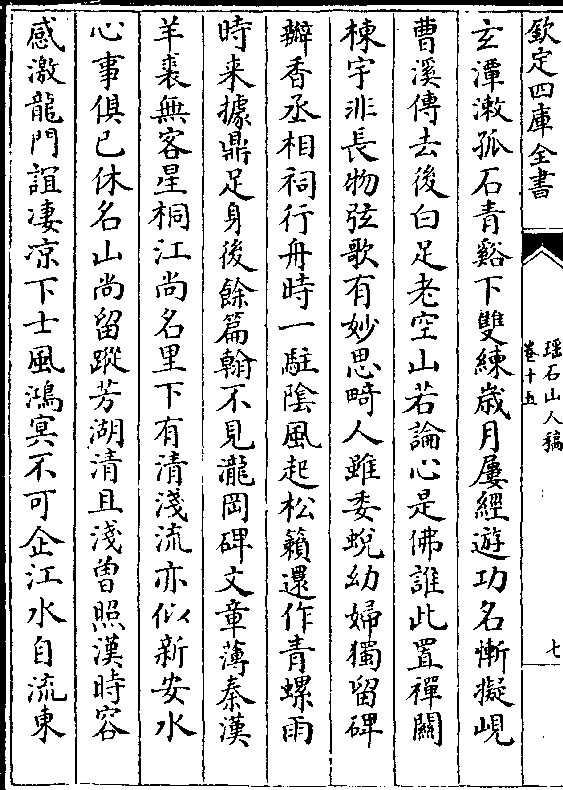 欽定四庫全書
瑶石山人稿
卷十五
七
玄潭漱孤石青谿下雙練歲月屢經遊功名慚擬峴
曹溪傳去後白足老空山若論心是佛誰此置禪關
棟宇非長物弦歌有妙思畸人雖委蛻幼婦獨留碑
瓣香丞相祠行舟時一駐陰風起松籟還作青螺雨
時来據鼎足身後餘篇翰不見瀧岡碑文章薄秦漢
羊裘無客星桐江尚名里下有清淺流亦似新安水
心事俱已休名山尚留蹤芳湖清且淺曽照漢時容
感激龍門誼凄凉下士風鴻冥不可企江水自流東